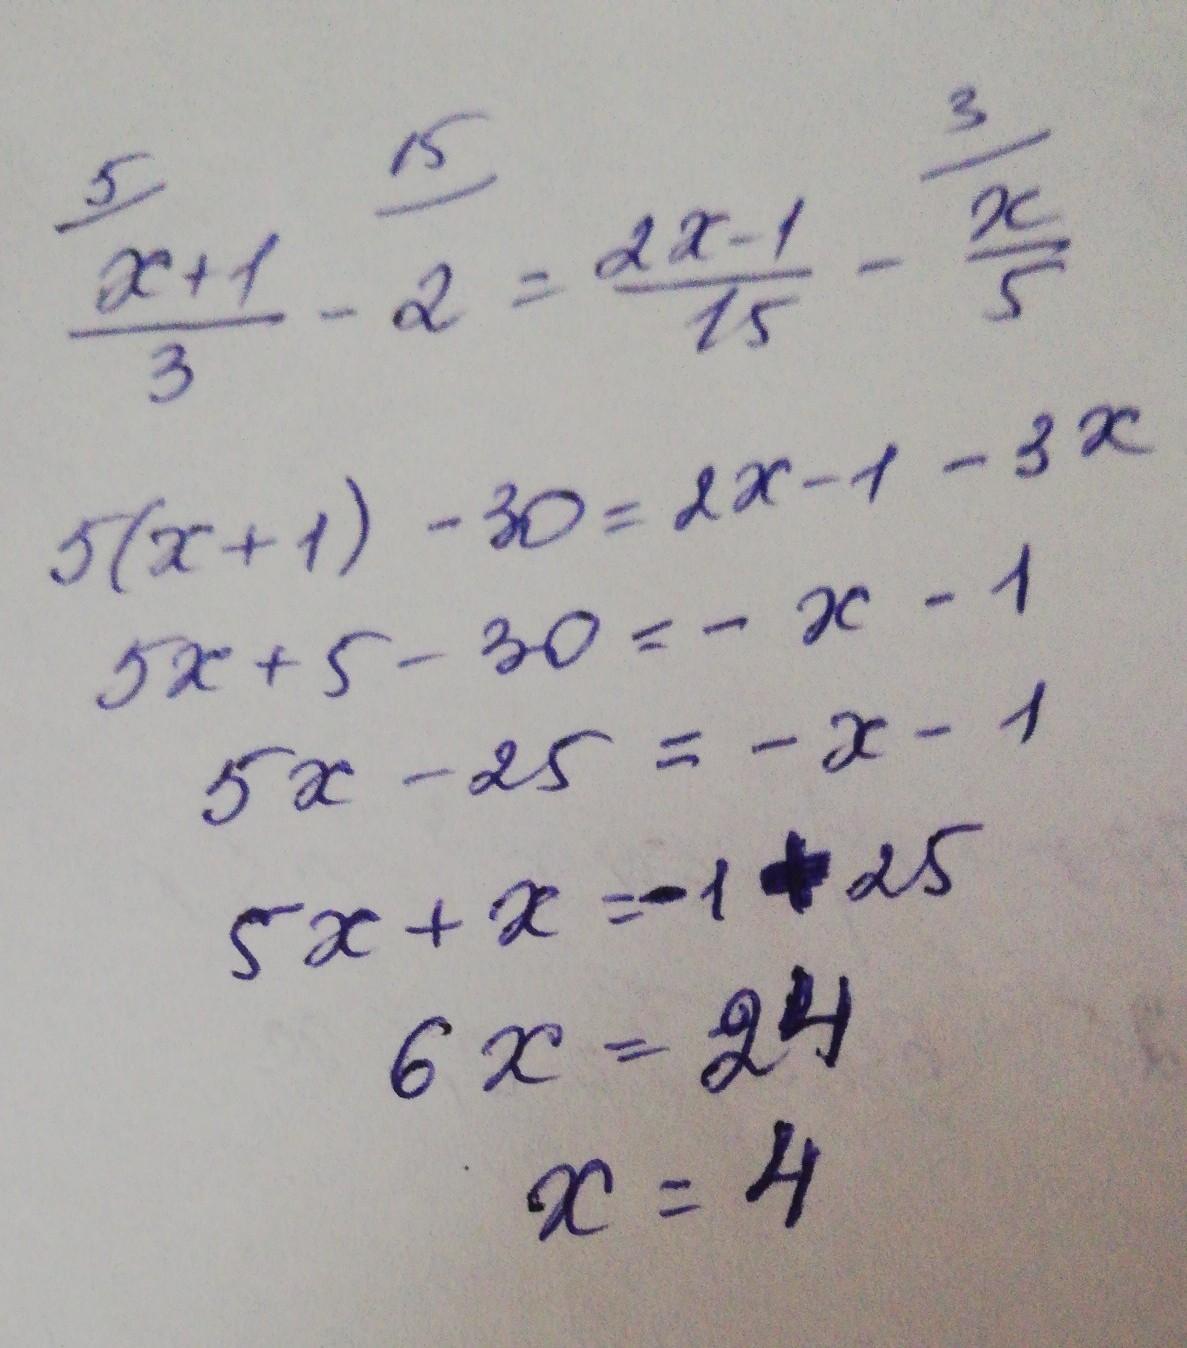 5/ (x+1)/3 - 15/ 2 = (2x-1)/15 - 3/ x/5
5(x+1) - 30 = 2x - 1 - 3x
5x + 5 - 30 = - x - 1
5x - 25 = - x - 1
5x + x = -1 + 25
6x = 24
x = 4